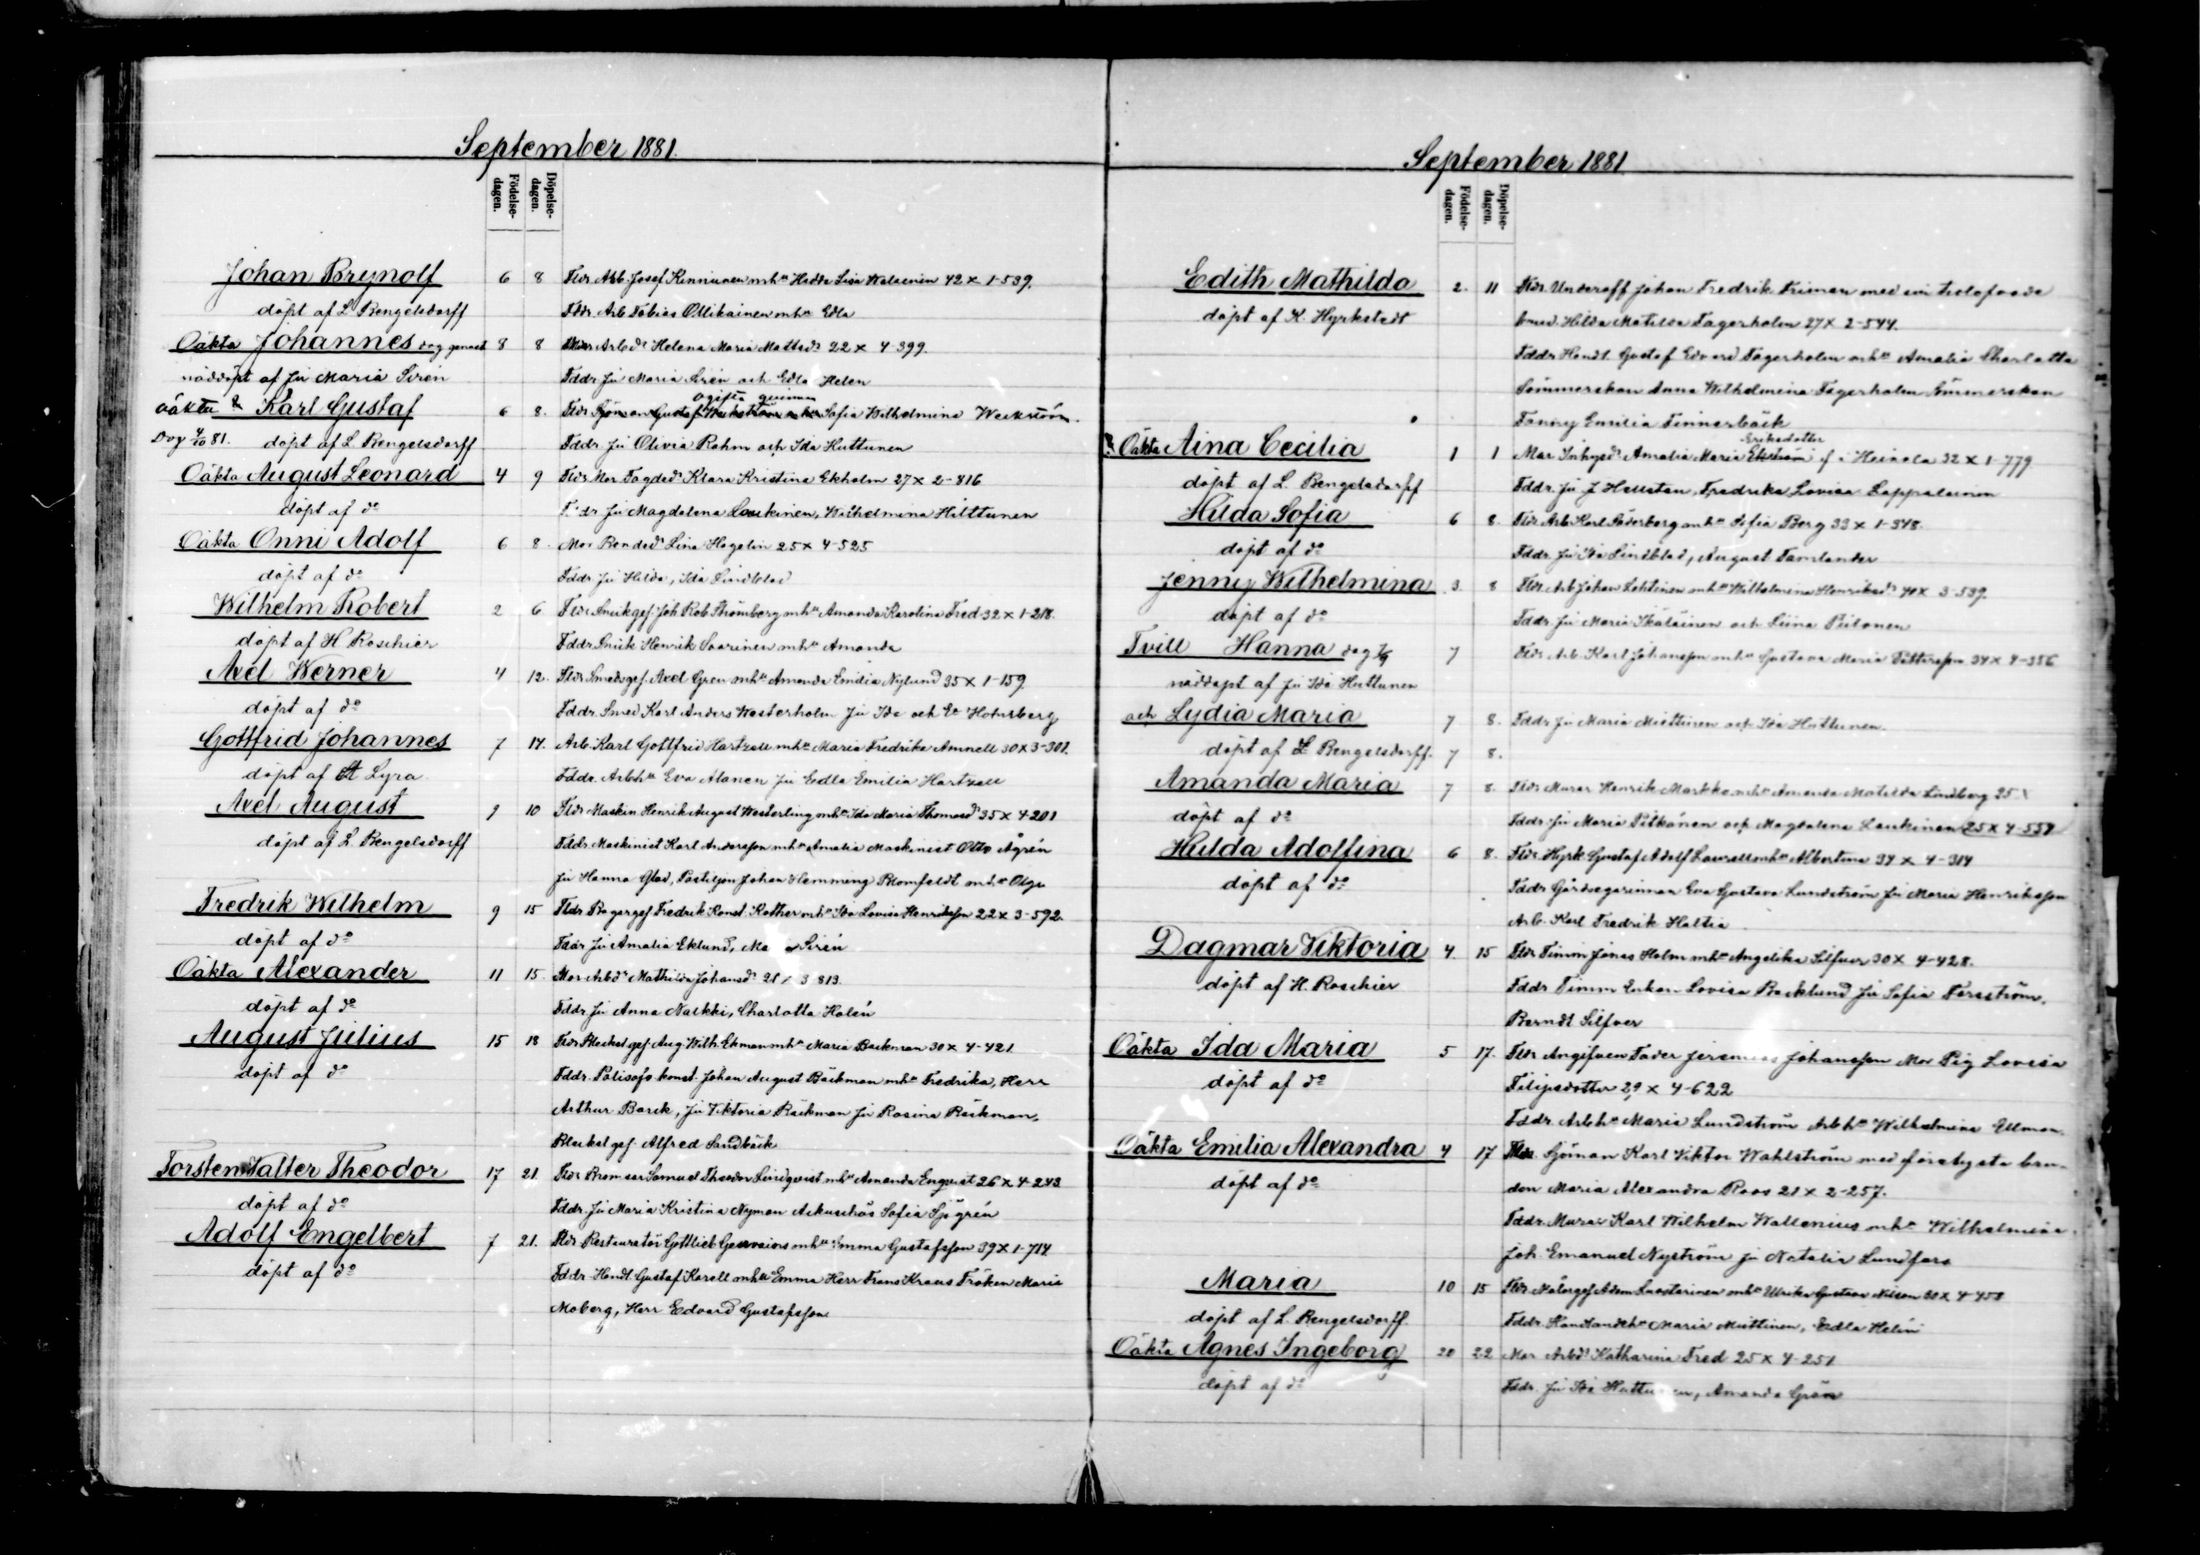 September 1881.
Födelse-
dagen.
Döpelse-
dagen.
Johan Brynolf 6 8 Fldr Arb. Josef Kinnunen m h. Hedda Lisa 42 x 1-539.
döpt af L Bengelsdorff Fddr. Arb Tobias Ollikainen m h. Edla
Oäkta Johannes dog genast 8 8 Arbd. Helena Maria Mattsd. 22 x 4-399.
nöddöpt af ju Maria Sirén Fddr ju Maria Sirén och Edla Helen
oäkta Karl Gustaf 6 8. Fldr Sjöman Gustaf ogifta qvinnan Sofia Wilhelmina Weckström.
Dog 4/10 81. döpt af L Bengelsdorff Fddr. ju Olivia Rahm och Ida Huttunen
Oäkta August Leonard 4 9 Fldr Mor Fogded. Klara Kristina Ekholm 27 x 2-816
döpt af do Fddr ju Magdalena Laukinen, Wilhelmina Hilttunen
Oäkta Onni Adolf 6 8. Mor Bonded. Lina Hagelin 25 x 4-525
döpt af do Fddr ju Hilda, Ida Lindblad
Wilhelm Robert 2 6 Fldr Snickgef Joh Rob Strömberg m h. Amanda Karolina Fred 32 x 1-218.
döpt af H Roschier Fddr Snick Henrik Saarinen m h. Amanda
Axel Werner 4 12. Fldr Smedsgef. Axel Gren m h. Amanda Emilia Nylund 35 x 1-159
döpt af do Fddr. Smed Karl Anders Westerholm ju Ida och Ev Holmberg
Gottfrid Johannes 7 14. Arb. Karl Gottfrid Hartzell m h. Maria Fredrika Amnell 30 x 3-301.
döpt af A Lyra Fddr. Arbh. Eva Alanen ju Edla Emilia Hartzell
Axel August 9 10 Fldr Maskin Henrik August Westerling m h. Ida Maria Thomasd. 35 x 4-201
döpt af L Bengelsdorff Fddr. Maskinist Karl Andersson m h. Amalia Maskinist Otto Ågrén
ju Hanna Glad, Postiljon Johan Hemming Blomfeldt m h. Olga
Fredrik Wilhelm 9 15 Fldr Bagargef Fredrik Konst. Rother m h. Ida Lovisa Henriksson 22 x 3-592.
döpt af do Fddr ju Amalia Eklund, Sirén
Oäkta Alexander 11 15. Mor Arbd. Mathilda Johansd. 21 / 3 813.
döpt af do Fddr ju Anna Naikki, Charlotta Holén
August Julius 15 18 Fldr Bleckslgef Aug. Wilh. Ekman m h. Maria Backman 30 x 4-421
döpt af do Fddr. Polisofs konst. Johan August Bäckman m h. Fredrika, Herr
Arthur Barck, ju Viktoria Bäckman ju Rosina Bäckman,
Bleckslgef. Alfred Sandbäck
Torsten Valter Theodor 17 21 Fldr Samuel Theodor Lindqvist m h. Amanda Enqvist 26 x 4-243
döpt af do Fddr. ju Maria Kristina Nyman Sofia Sjögrén
Adolf Engelbert 7 21. Fldr Restauratör Gottlieb m h. Emma Gustafsson 39 x 1-714
döpt af do Fddr Handl. Gustaf Karell m h. Emma Herr Frans Kraus Fröken Maria
Moberg, Herr Edvard Gustafsson
September 1881
Födelse-
dagen.
Döpelse-
dagen.
Edith Mathilda 2. 11 Fldr. Underoff Johan Fredrik Friman med sin trolofvade
döpt af K. Hyrkstedt Hilda Matilda Fagerholm 27 x 2-544.
Fddr Handl. Gustaf Edvard Fagerholm m h. Amalia Charlotta
Sömmerskan Anna Wilhelmina Fagerholm Sömmerskan
Fanny Emilia Finnerbäck
Oäkta Aina Cecilia 1 1 Mor Inhysd. Amalia Maria Eriksdotter f i Heinola 32 x 1-779
döpt af L. Bengelsdorff Fddr ju J Hellsten, Fredrika Lovisa Lappalainen
Hilda Sofia 6 8. Fldr. Arb. Karl Söderberg m h. Sofia Berg 33 x 1-348.
döpt af do Fddr ju Ida Lindblad, August Tamlander
Jenny Wilhelmina 3 8 Fldr Arb Johan Lehtinen m h. Wilhelmina Henriksd. 40 x 3-539.
döpt af do Fddr ju Maria Ikäläinen och Lina Piilonen
Tvill Hanna dog 7/9 7 Fldr Arb. Karl Johansson m h. Gustava Maria Pettersson 34 x 4-356
nöddöpt af ju Ida Huttunen
och Lydia Maria 7 8. Fddr ju Maria Miettinen och Ida Huttunen.
döpt af L Bengelsdorff. 7 8.
Amanda Maria 7 8. Fldr Murar Henrik Markko m h. Amanda Matilda Lindberg 25 x
döpt af do Fddr. ju Maria Pitkänen och Magdalena Laukinen 25 x 4-559
Hulda Adolfina 6 8. Fldr. Hyrk Gustaf Adolf Laurell m h. Albertina 34 x 4-314
döpt af do Fddr Gårdsegarinnan Eva Gustava Lundström ju Maria Henriksson
Arb. Karl Fredrik Haltia
Dagmar Viktoria 4 15 Fldr Timm Jonas Holm m h. Angelika Silfver 30 x 4-428.
döpt af H. Roschier Fddr Timm Enkan Lovisa Backlund ju Sofia Forsström,
Berndt Silfver
Oäkta Ida Maria 5 17. Fldr Angifven Fader Jeremias Johansson Mor Pig Lovisa
döpt af do Filipsdotter 29 x 4-622
Fddr. Arbh. Maria Lundström Arbh. Wilhelmina Ullman
Oäkta Emilia Alexandra 4 17 Fldr. Sjöman Karl Viktor Wahlström med förelysta bru-
döpt af do den Maria Alexandra Roos 21 x 2-257.
Fddr. Murar Karl Wilhelm Wallenius m h. Wilhelmina
Joh Emanuel Nyström ju Natalia Lundfors
Maria 10 15 Fldr. Målargef Adam m h. Ulrika Gustava Nilsson 30 x 4-458
döpt af L. Bengelsdorff Fddr. Maria Miettinen, Edla Helin
Oäkta Agnes Ingeborg 20 22 Mor Arbd. Katharina Fred 25 x 4-251
döpt af do Fddr. ju Ida Huttunen, Amanda Grön